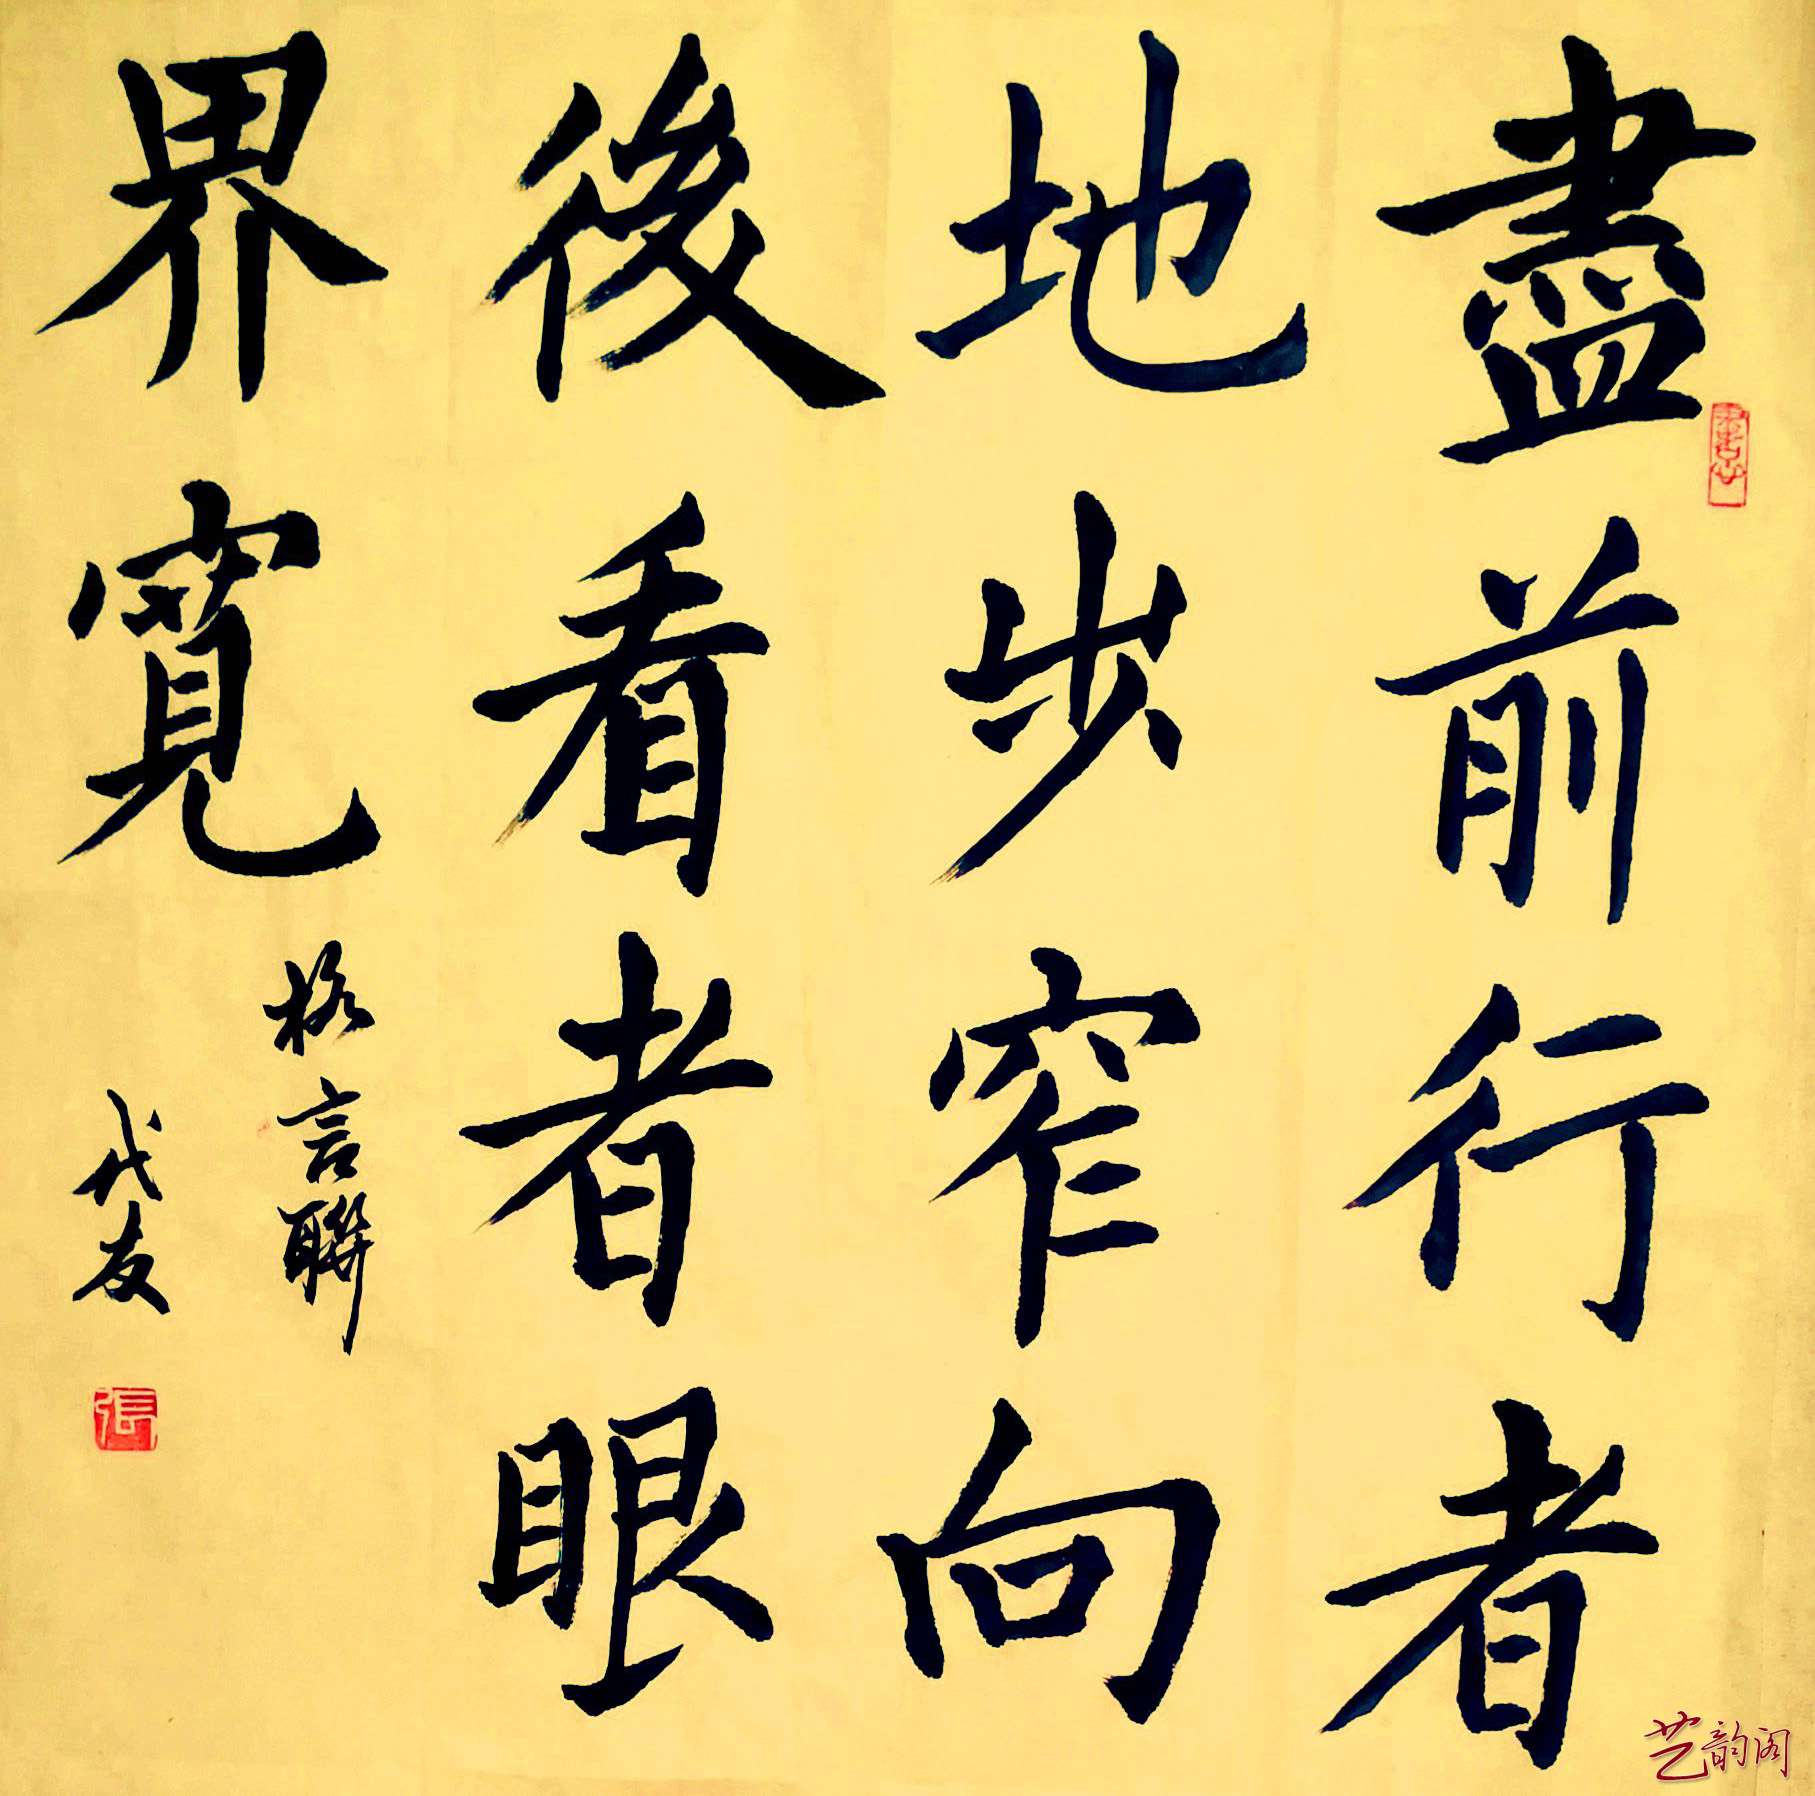 盡前行者
地步窄向
後看者眼
界寬
格言聯
代友
張
艺韵阁